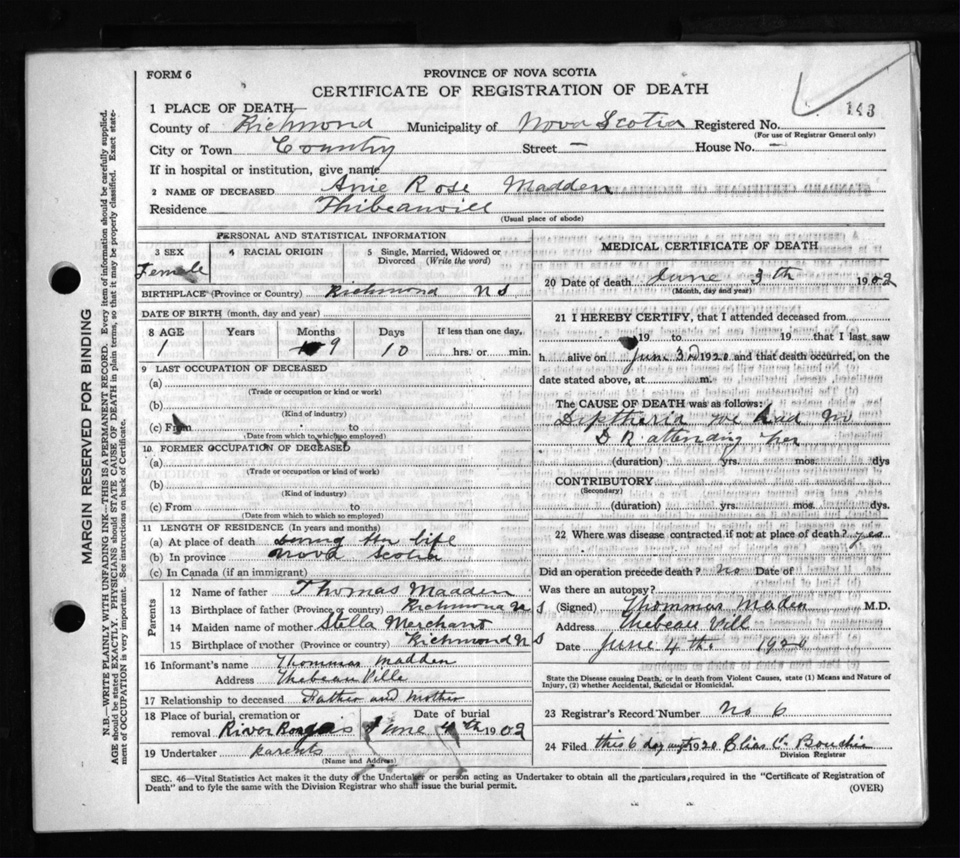 FORM 6
PROVINCE OF NOVA SCOTIA
CERTIFICATE OF REGISTRATION OF DEATH
143
1 PLACE OF DEATH—
County of Richmond Municipality of Nova Scotia Registered No.
(For use of Registrar General only)
City or Town Country Street — House No. —
If in hospital or institution, give name
2 NAME OF DECEASED Anie Rose Madden
Residence Thibeauvill
(Usual place of abode)
PERSONAL AND STATISTICAL INFORMATION
3 SEX 4 RACIAL ORIGIN 5 Single, Married, Widowed or Divorced (Write the word)
Female
BIRTHPLACE (Province or Country) Richmond NS
DATE OF BIRTH (month, day and year)
8 AGE Years Months Days If less than one day,
1 9 10 hrs. or min.
9 LAST OCCUPATION OF DECEASED
(a)
(Trade or occupation or kind or work)
(b)
(Kind of industry)
(c) From to
(Date from which to which so employed)
10 FORMER OCCUPATION OF DECEASED
(a)
(Trade or occupation or kind of work)
(b)
(Kind of industry)
(c) From to
(Date from which to which so employed)
11 LENGTH OF RESIDENCE (In years and months)
(a) At place of death During her life
(b) In province Nova Scotia
(c) In Canada (if an immigrant)
Parents
12 Name of father Thomas Madden
13 Birthplace of father (Province or country) Richmond NS
14 Maiden name of mother Stella Merchant
15 Birthplace of mother (Province or country) Richmond NS
16 Informant's name Thommas Madden
Address Thebeau Ville
17 Relationship to deceased Father and Mother
18 Place of burial, cremation or removal River Date of burial June 4th 1902
19 Undertaker parents
(Name and Address)
MEDICAL CERTIFICATE OF DEATH
20 Date of death June 3th 1902
(Month, day and year)
21 I HEREBY CERTIFY, that I attended deceased from
19 to 19 that I last saw
h alive on June 3rd 1920 and that death occurred, on the
date stated above, at m.
The CAUSE OF DEATH was as follows:
Diptheria We had No
DR attending her
(duration) yrs. mos. dys
CONTRIBUTORY
(Secondary)
(duration) yrs. mos. dys
22 Where was disease contracted if not at place of death? yes
Did an operation precede death? no Date of
Was there an autopsy?
(Signed) Thommas Maden M.D.
Address Thebeau Vill
Date June 4 th
State the Disease causing Death, or in death from Violent Causes, state (1) Means and Nature of Injury, (2) whether Accidental, Suicidal or Homicidal.
23 Registrar's Record Number No 6
24 Filed this 6 day 1920 Elias C. Boudin
Division Registrar
SEC. 46—Vital Statistics Act makes it the duty of the Undertaker or person acting as Undertaker to obtain all the particulars required in the "Certificate of Registration of
Death" and to fyle the same with the Division Registrar who shall issue the burial permit.
(OVER)
MARGIN RESERVED FOR BINDING
N.B.—WRITE PLAINLY WITH UNFADING INK—THIS IS A PERMANENT RECORD. Every item of information should be carefully supplied.
AGE should be stated EXACTLY. PHYSICIANS should STATE CAUSE OF DEATH in plain terms, so that it may be properly classified. Exact state-
ment of OCCUPATION is very important. See instructions on back of Certificate.